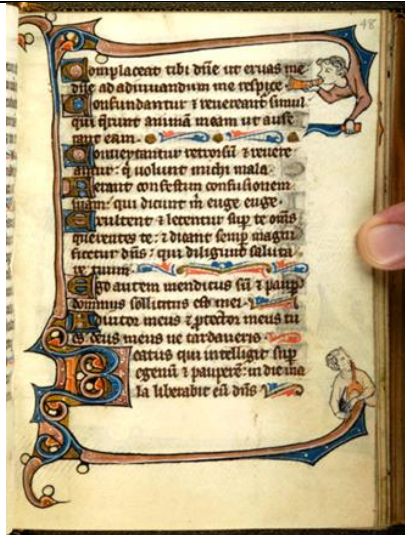 48
Complaceat tibi dñe ut eruas me
dñe ad adiuuandum me respice
Confundantur ⁊ reuereant̉ simul
qui q̃runt animã meam ut aufe
rant eam
Conuertantur retrorsũ ⁊ reuere
antur: q̇ uolunt michi mala
Ferant confestim confusionem
suam: qui dicunt m̃ euge euge
Exultent ⁊ letentur sup̃ te om̃s
querentes te: ⁊ dicant semp̃ magni
ficetur dñs: qui diligunt saluta
re tuum
Ego autem mendicus sũ ⁊ paup̃
dominus sollicitus est mei
Adiutor meus ⁊ ꝓtector meus tu
es: deus meus ne tardaueris
Beatus qui intelligit sup̃
egenũ ⁊ pauperẽ: in die ma
la liberabit eũ dñs